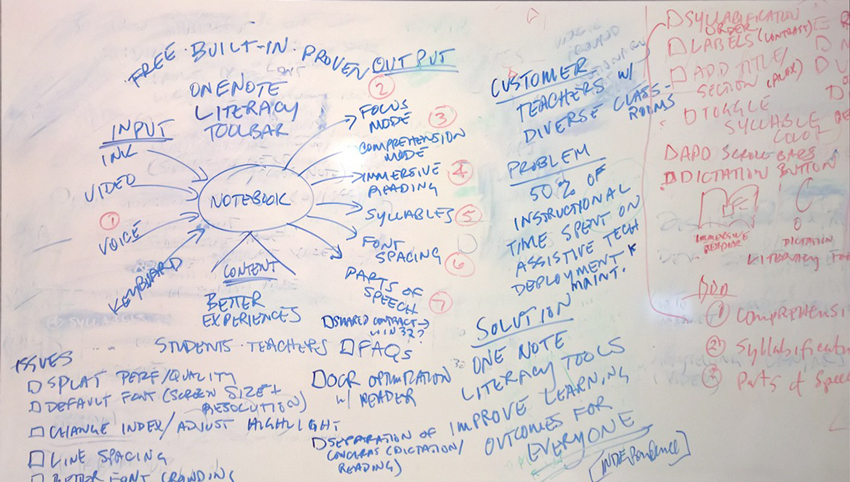 FREE · BUILT-IN · PROVEN
ONENOTE
LITERACY
TOOLBAR
INPUT
INK
VIDEO
① VOICE
KEYBOARD
NOTEBOOK
CONTENT
BETTER
EXPERIENCES
STUDENTS · TEACHERS
OUTPUT
②
FOCUS
MODE ③
COMPREHENSION
MODE
IMMERSIVE ④
READING
SYLLABLES ⑤
FONT
SPACING ⑥
PARTS OF
SPEECH ⑦
SHARED CONTRACT →
WIN 32?
FAQs
OCR OPTIMIZATION
W/ READER
SEPARATION OF
CONCERNS (DICTATION/
READING)
ISSUES
SPLAT PERF/QUALITY
DEFAULT FONT (SCREEN SIZE +
RESOLUTION)
CHANGE INDEX/ADJUST HIGHLIGHT
LINE SPACING
BETTER FONT
CUSTOMER
TEACHERS W/
DIVERSE CLASS-
ROOMS
PROBLEM
50% OF
INSTRUCTIONAL
TIME SPENT ON
ASSISTIVE TECH
DEPLOYMENT &
MAINT.
SOLUTION
ONE NOTE
LITERACY TOOLS
IMPROVE LEARNING
OUTCOMES FOR
EVERYONE
[INDEPendence]
SYLLABIFICATION
ORDER
LABELS (CONTRAST)
ADD TITLE/
SECTION
TOGGLE
SYLLABLE
COLOR
ADD SCROLL BARS
DICTATION BUTTON
IMMERSIVE
DICTATION
LITERACY
①
Comprehensi
② Syllabificat
③ Parts of Speec